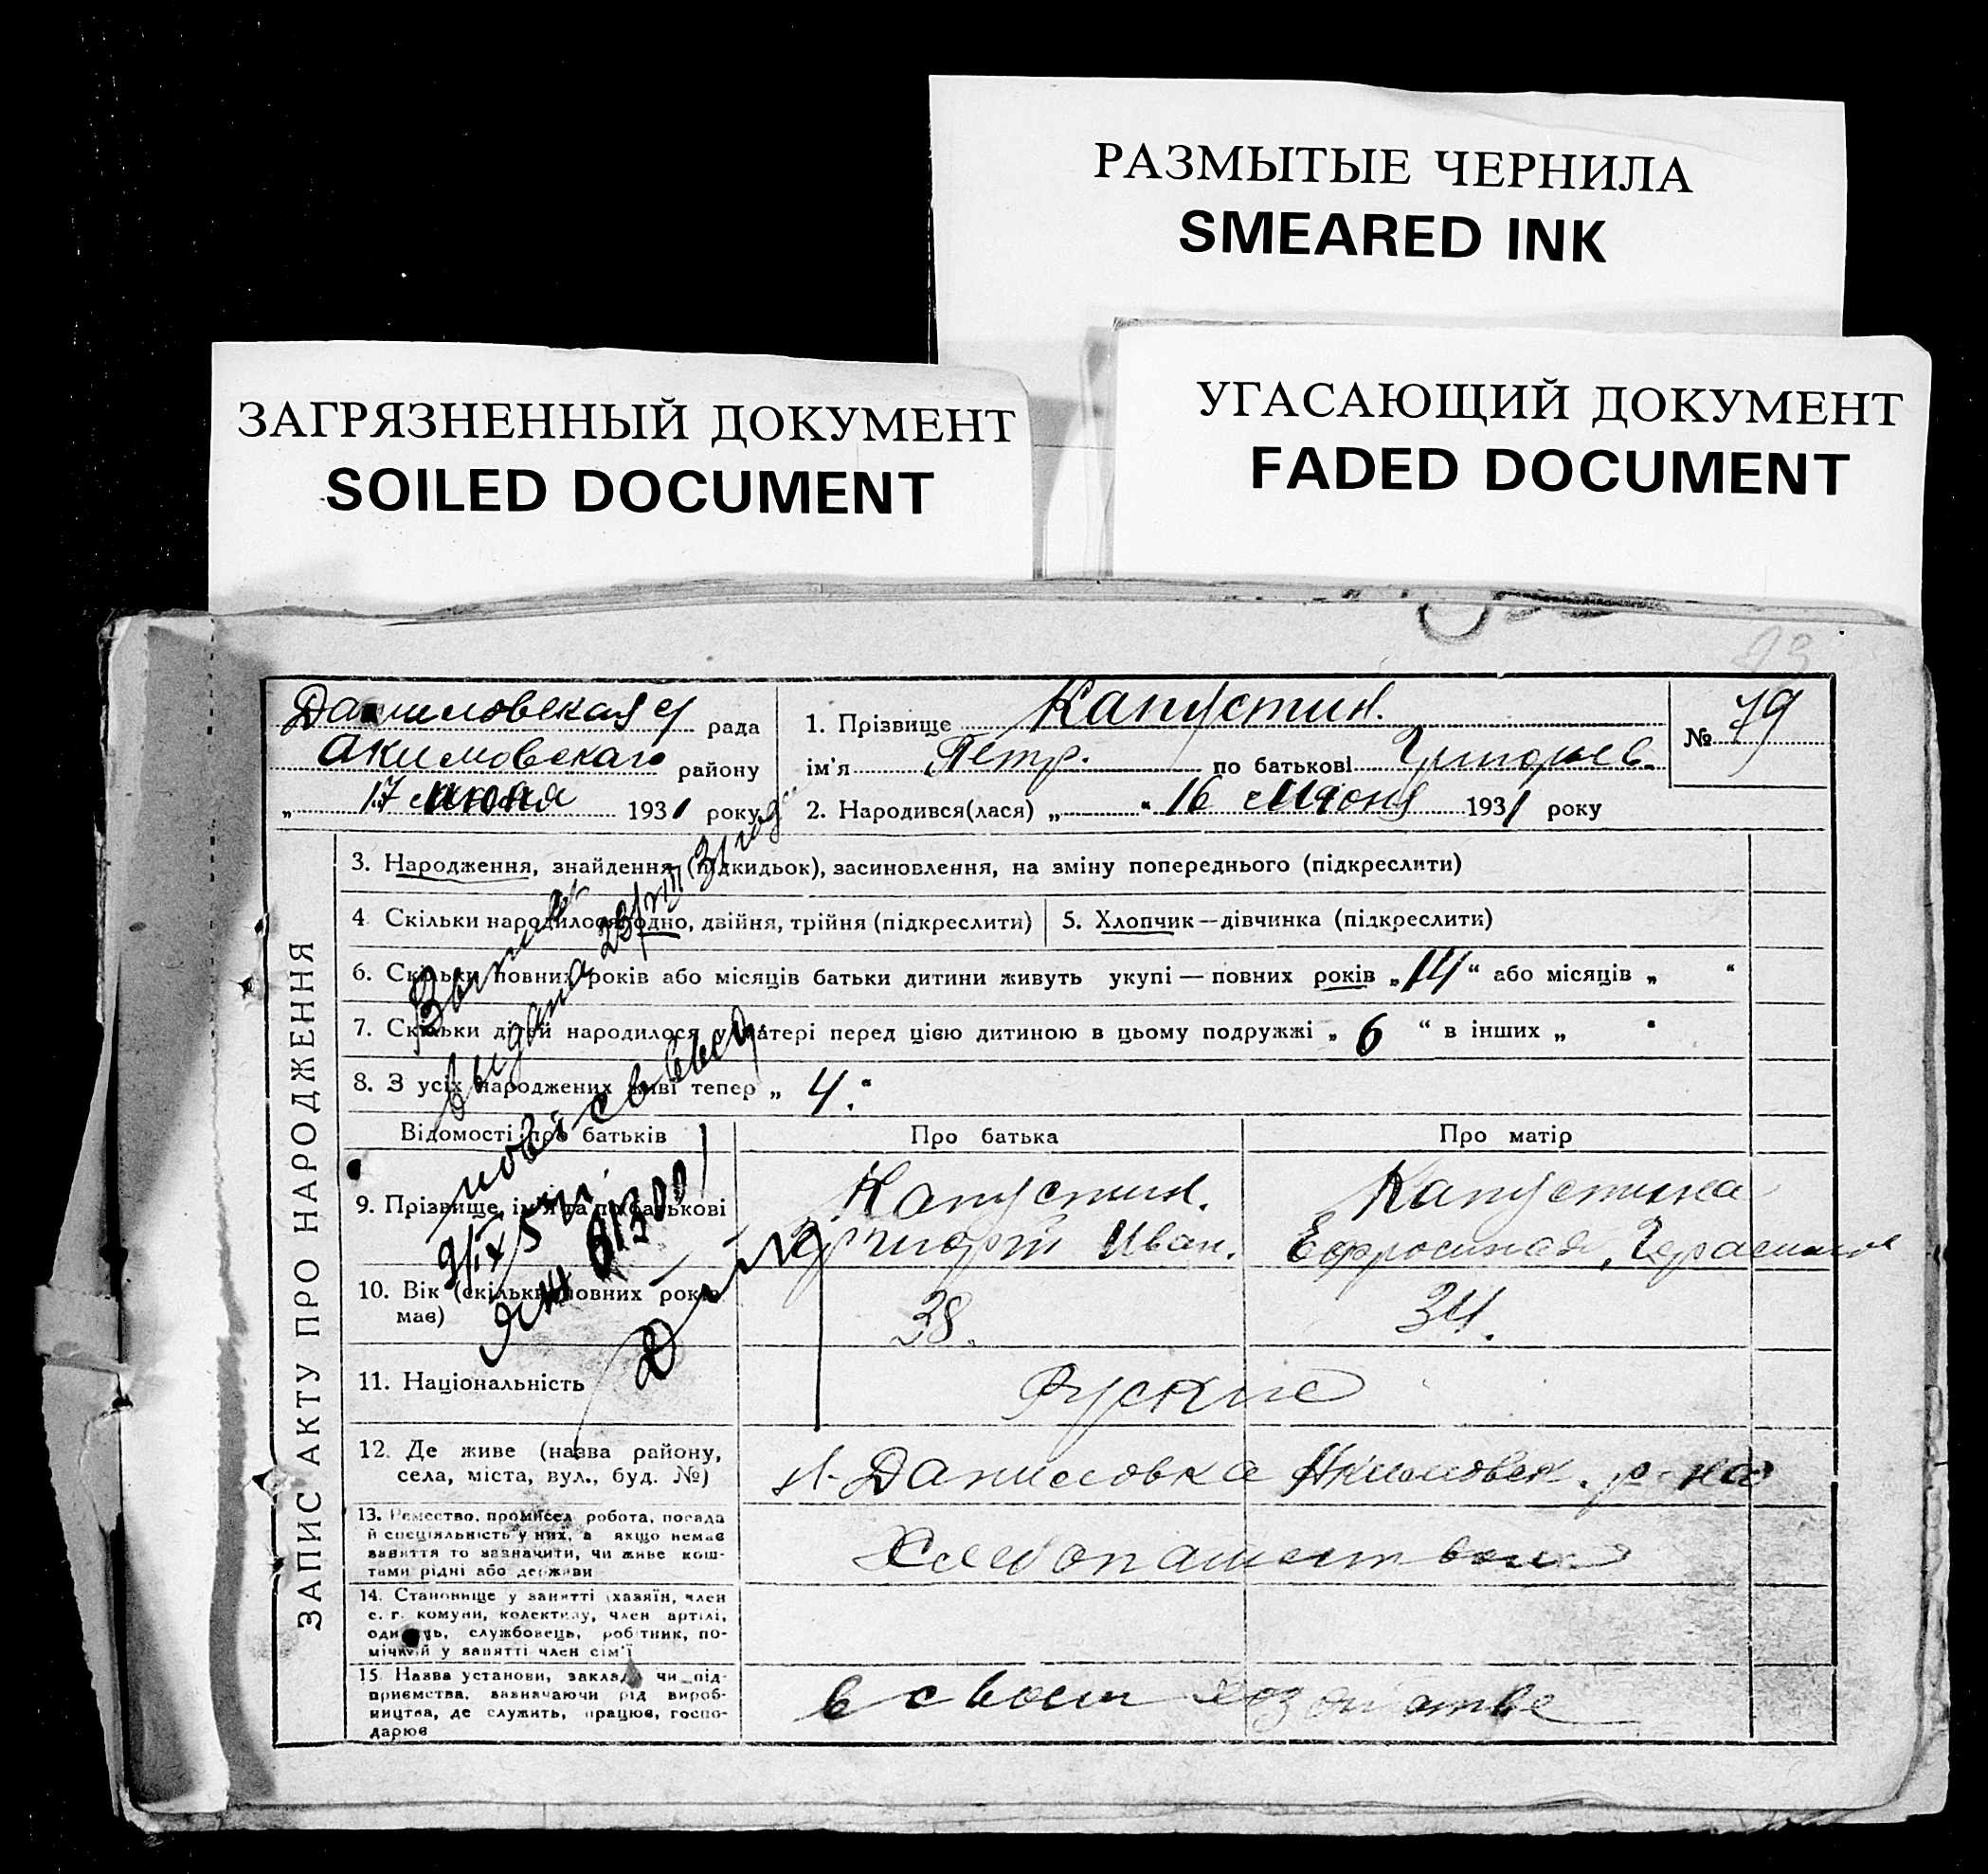 РАЗМЫТЫЕ ЧЕРНИЛА
SMEARED INK
ЗАГРЯЗНЕННЫЙ ДОКУМЕНТ
SOILED DOCUMENT
УГАСАЮЩИЙ ДОКУМЕНТ
FADED DOCUMENT
Даниловская с/ рада
Акимовского району
„ 17 июня 1931 року
1. Прізвище Капустин.
ім'я Петр. по батькові Григорьев.
2. Народився(лася) „ “ 16 Июня 1931 року
№ 79
ЗАПИС АКТУ ПРО НАРОДЖЕННЯ
3. Народження, знайдення (підкидьок), засиновлення, на зміну попереднього (підкреслити)
4 Скільки народилося: одно, двійня, трійня (підкреслити)
5. Хлопчик—дівчинка (підкреслити)
6. Скільки повних років або місяців батьки дитини живуть укупі — повних років „ 14 “ або місяців „ “
7. Скільки дітей народилося у матері перед цією дитиною в цьому подружжі „ 6 “ в інших „ “
8. З усіх народжених живі тепер „ 4. “
Відомості про батьків
Про батька
Про матір
9. Прізвище, ім'я та по батькові
Капустин.
Григорий Иван.
Капустина
Ефросиния, Герасимов
10. Вік (скільки повних років
має)
38.
34.
11. Національність
Руские
12. Де живе (назва району,
села, міста, вул., буд. №)
Даниловка Акимовск. р-на
13. Ремество, промисел, робота, посада
й спеціяльність у них, а якщо немає
заняття то зазначити, чи живе кош-
тами рідні або держави
Хлебопашеством
14. Становище у занятті (хазяїн, член
с. г. комуни, колективу, член артілі,
одинець, службовець, робітник, по-
мічний у занятті член сім'ї
15. Назва установи, закладу чи під-
приємства, зазначаючи рід вироб-
ництва, де служить, працює, госпо-
дарює
в своем хозяйстве
выдана 23/VIII 31 года